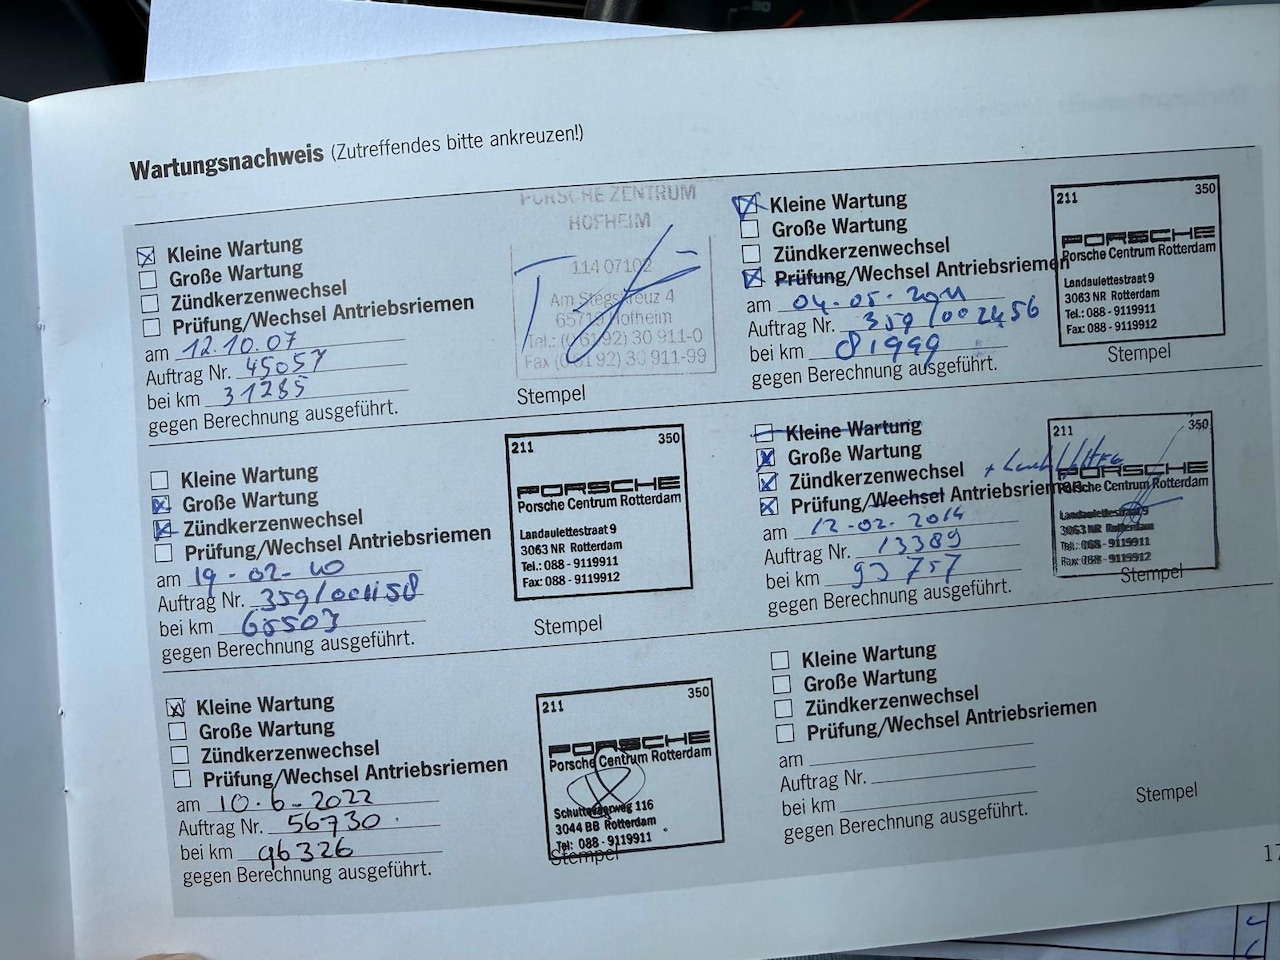 Wartungsnachweis (Zutreffendes bitte ankreuzen!)
Kleine Wartung
Große Wartung
Zündkerzenwechsel
Prüfung/Wechsel Antriebsriemen
am 12.10.07
Auftrag Nr. 45057
bei km 31285
gegen Berechnung ausgeführt.
PORSCHE ZENTRUM
HOFHEIM
114 07102
Am Stegskreuz 4
65719 Hofheim
Tel.: (0 61 92) 30 911-0
Fax (0 61 92) 30 911-99
Stempel
Kleine Wartung
Große Wartung
Zündkerzenwechsel
Prüfung/Wechsel Antriebsriemen
am 04-05-2011
Auftrag Nr. 359/002456
bei km 81999
gegen Berechnung ausgeführt.
211 350
PORSCHE
Porsche Centrum Rotterdam
Landaulettestraat 9
3063 NR Rotterdam
Tel.: 088 - 9119911
Fax: 088 - 9119912
Stempel
Kleine Wartung
Große Wartung
Zündkerzenwechsel
Prüfung/Wechsel Antriebsriemen
am 19-02-10
Auftrag Nr. 359/001158
bei km 65503
gegen Berechnung ausgeführt.
211 350
PORSCHE
Porsche Centrum Rotterdam
Landaulettestraat 9
3063 NR Rotterdam
Tel.: 088 - 9119911
Fax: 088 - 9119912
Stempel
Kleine Wartung
Große Wartung
Zündkerzenwechsel
Prüfung/Wechsel Antriebsriemen
am 12-02-2014
Auftrag Nr. 13389
bei km 93757
gegen Berechnung ausgeführt.
211 350
PORSCHE
Porsche Centrum Rotterdam
Landaulettestraat 9
3063 NR Rotterdam
Tel.: 088 - 9119911
Fax: 088 - 9119912
Stempel
Kleine Wartung
Große Wartung
Zündkerzenwechsel
Prüfung/Wechsel Antriebsriemen
am 10-6-2022
Auftrag Nr. 56730
bei km 96326
gegen Berechnung ausgeführt.
211 350
PORSCHE
Porsche Centrum Rotterdam
116
3044 BB Rotterdam
Tel: 088 - 9119911
Stempel
Kleine Wartung
Große Wartung
Zündkerzenwechsel
Prüfung/Wechsel Antriebsriemen
am
Auftrag Nr.
bei km
gegen Berechnung ausgeführt.
Stempel